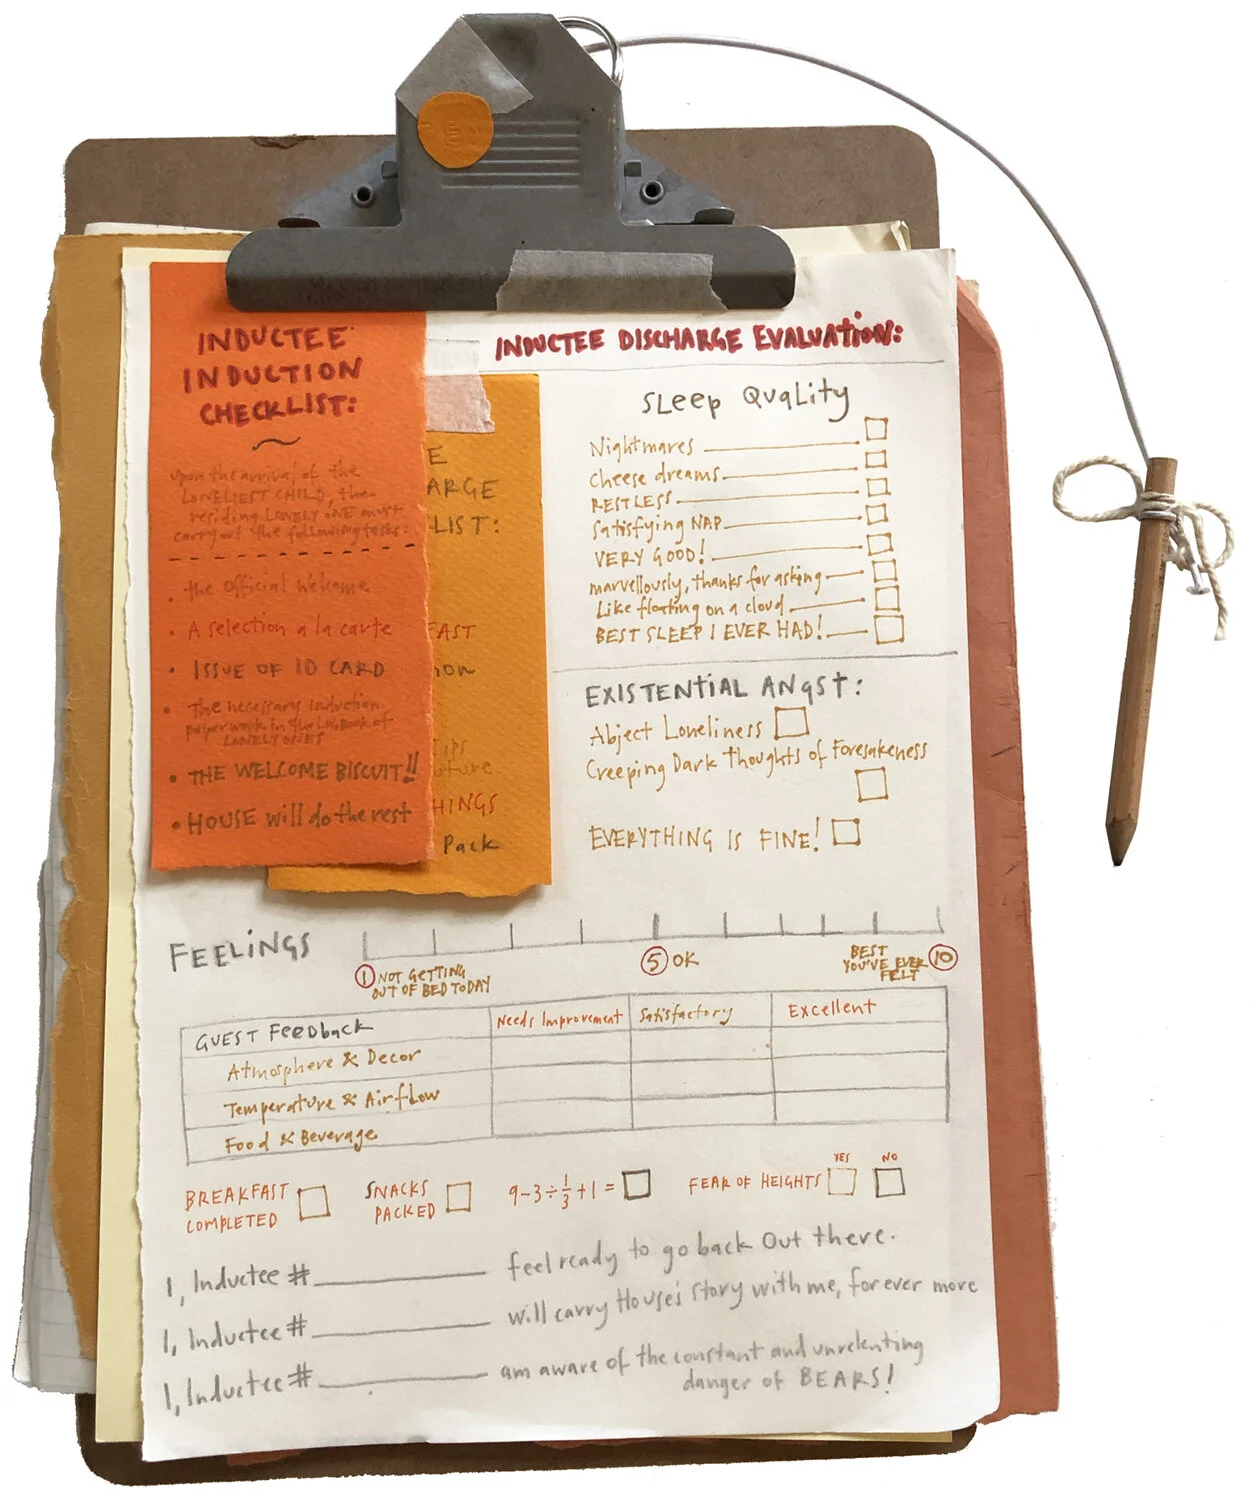 INDUCTEE
INDUCTION
CHECKLIST:
Upon the arrival of the
LONELIEST CHILD, the
residing LONELY ONE must
carry out the following tasks:
• the Official Welcome
• A selection a la carte
• ISSUE OF ID CARD
• The necessary induction
paperwork in the LOGBOOK of
LONELY ONES
• THE WELCOME BISCUIT!!
• HOUSE will do the rest
E
ARGE
LIST:
FAST
ion
Tips
uture
HINGS
Pack
INDUCTEE DISCHARGE EVALUATION:
SLEEP QUALITY
Nightmares
cheese dreams
RESTLESS
Satisfying NAP
VERY GOOD!
marvellously, thanks for asking
Like floating on a cloud
BEST SLEEP I EVER HAD!
EXISTENTIAL ANGST:
Abject Loneliness
Creeping Dark Thoughts of Foresakeness
EVERYTHING IS FINE!
FEELINGS
1 NOT GETTING
OUT OF BED TODAY
5 OK
BEST
YOU'VE EVER
FELT 10
GUEST Feedback Needs Improvement Satisfactory Excellent
Atmosphere & Decor
Temperature & Airflow
Food & Beverage
BREAKFAST
COMPLETED
SNACKS
PACKED
9-3÷1/3+1=
FEAR OF HEIGHTS YES NO
I, Inductee # feel ready to go back Out there.
I, Inductee # will carry House's story with me, for ever more
I, Inductee # am aware of the constant and unrelenting
danger of BEARS!